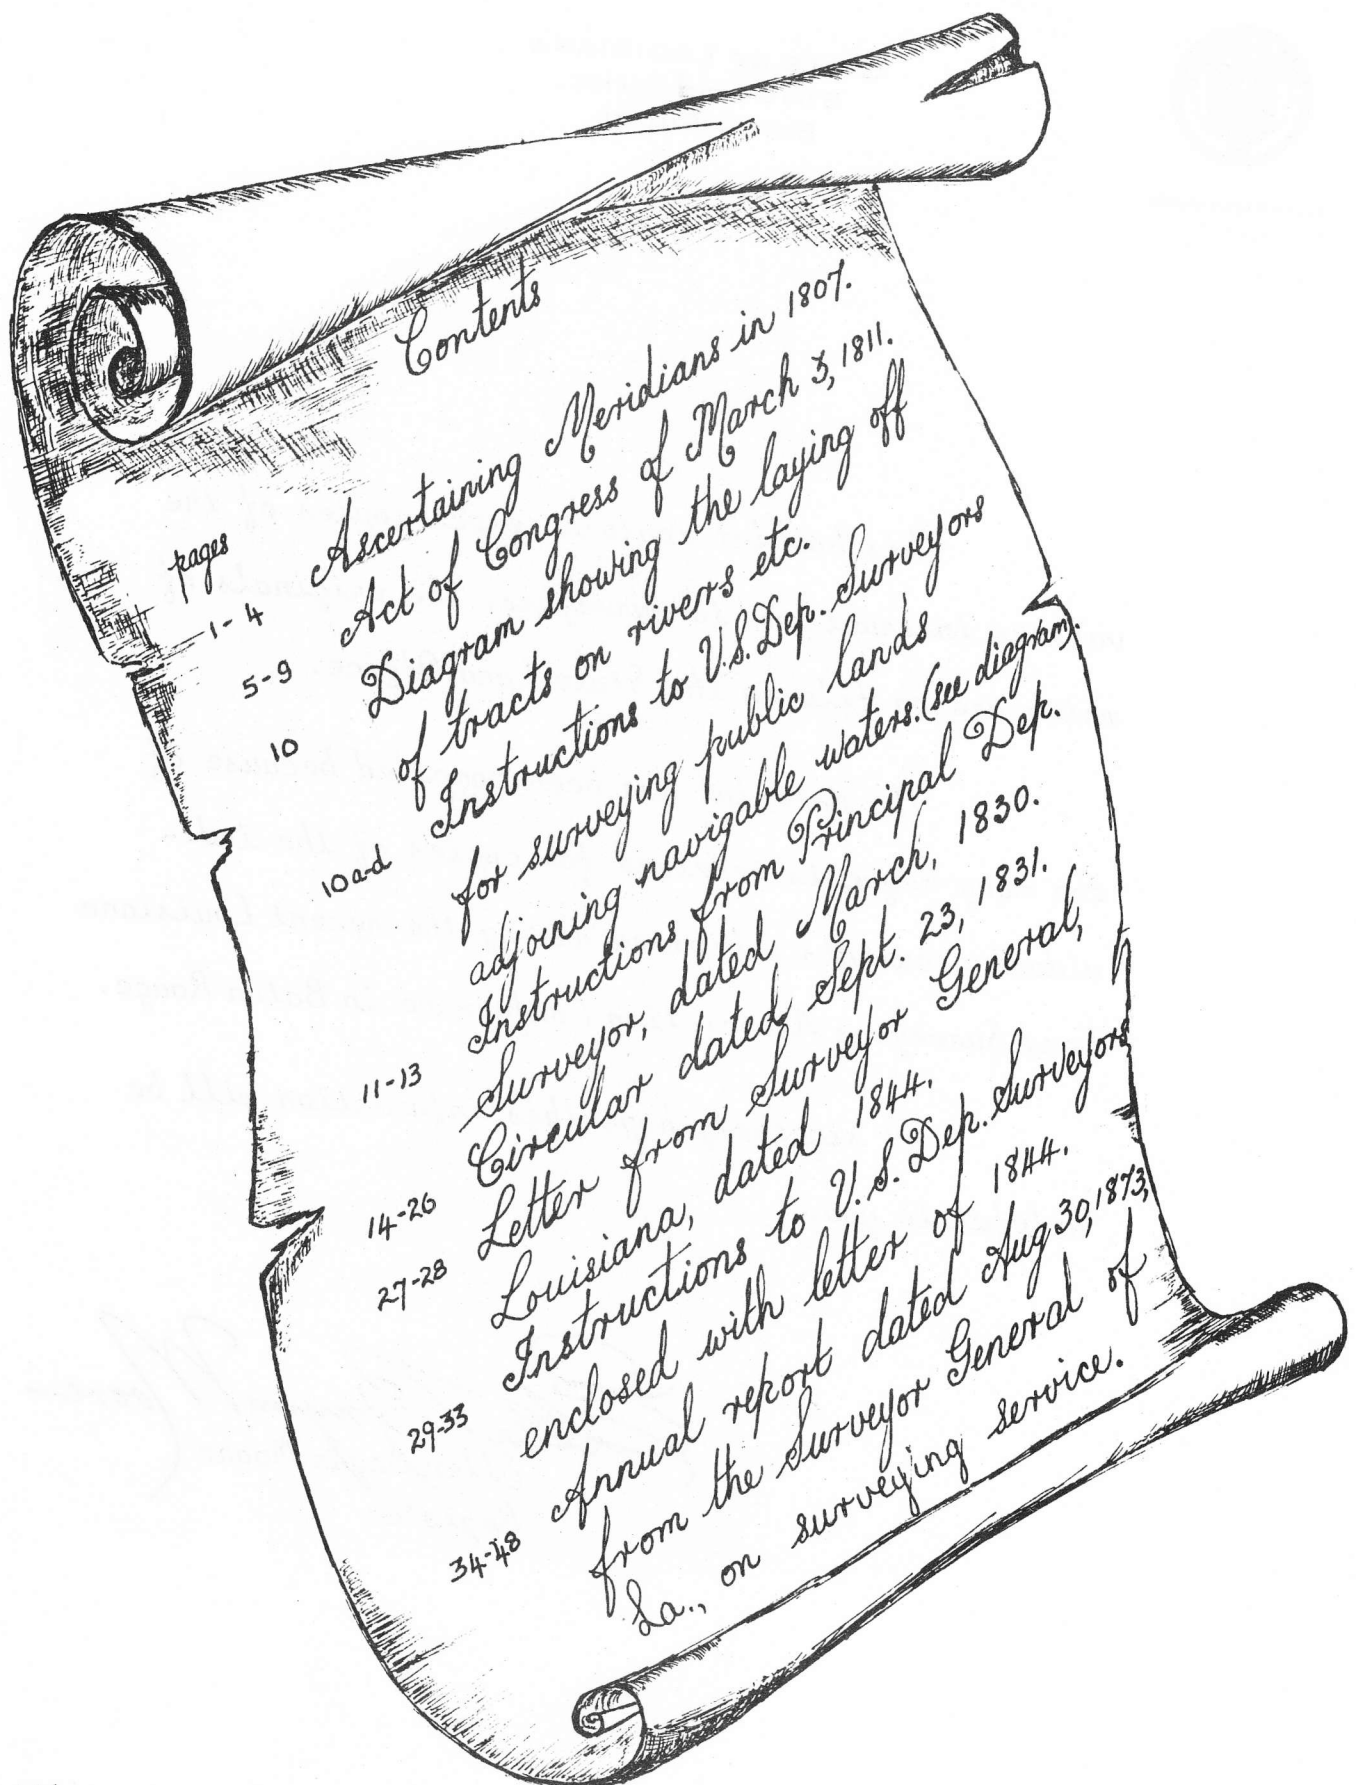 Contents
pages
1-4 Ascertaining Meridians in 1807.
5-9 Act of Congress of March 3, 1811.
10 Diagram showing the laying off
of tracts on rivers etc.
10a-d Instructions to U.S. Dep. Surveyors
for surveying public lands
adjoining navigable waters. (see diagram).
11-13 Instructions from Principal Dep.
Surveyor, dated March, 1830.
14-26 Circular dated Sept. 23, 1831.
27-28 Letter from Surveyor General,
Louisiana, dated 1844.
29-33 Instructions to U.S. Dep. Surveyors
enclosed with letter of 1844.
34-48 Annual report dated Aug 30, 1873,
from the Surveyor General of
La., on surveying service.